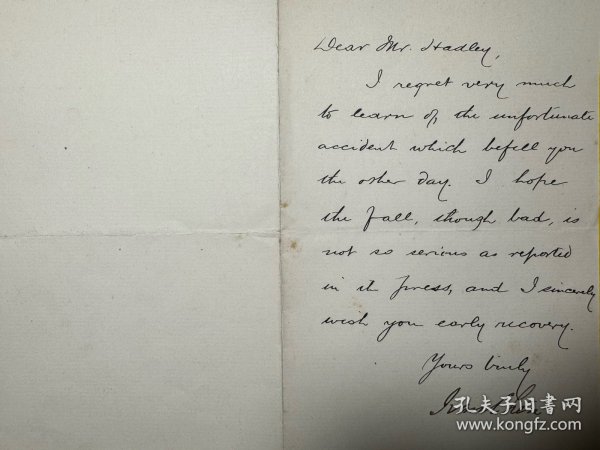 Dear Mr. Hadley,
I regret very much
to learn of the unfortunate
accident which befell you
the other day. I hope
the fall, though bad, is
not so serious as reported
in the press, and I sincerely
wish you early recovery.
Yours truly
孔夫子旧书网
www.kongfz.com